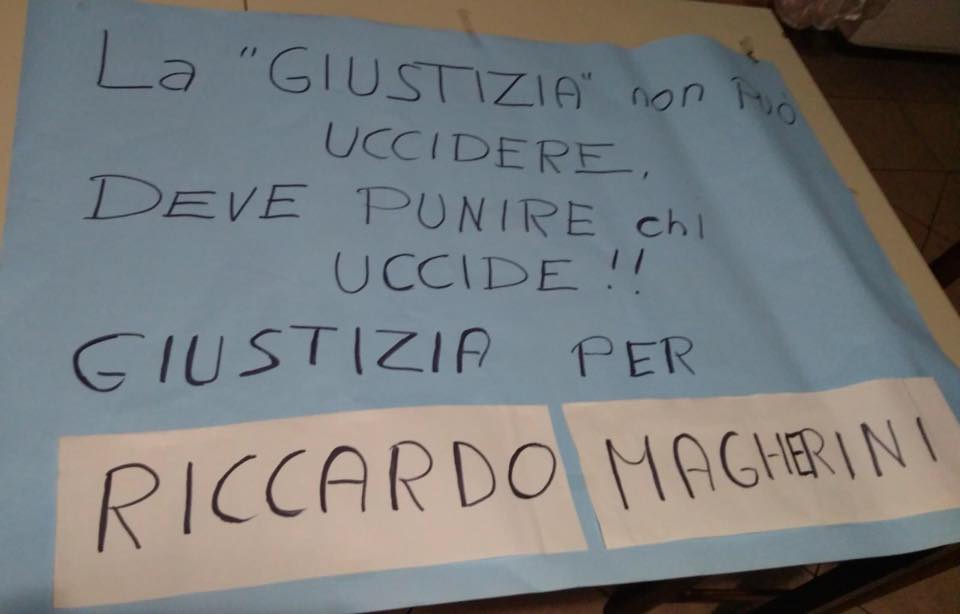 La "GIUSTIZIA" non PUÒ
UCCIDERE,
DEVE PUNIRE chi
UCCIDE!!
GIUSTIZIA PER
RICCARDO MAGHERINI